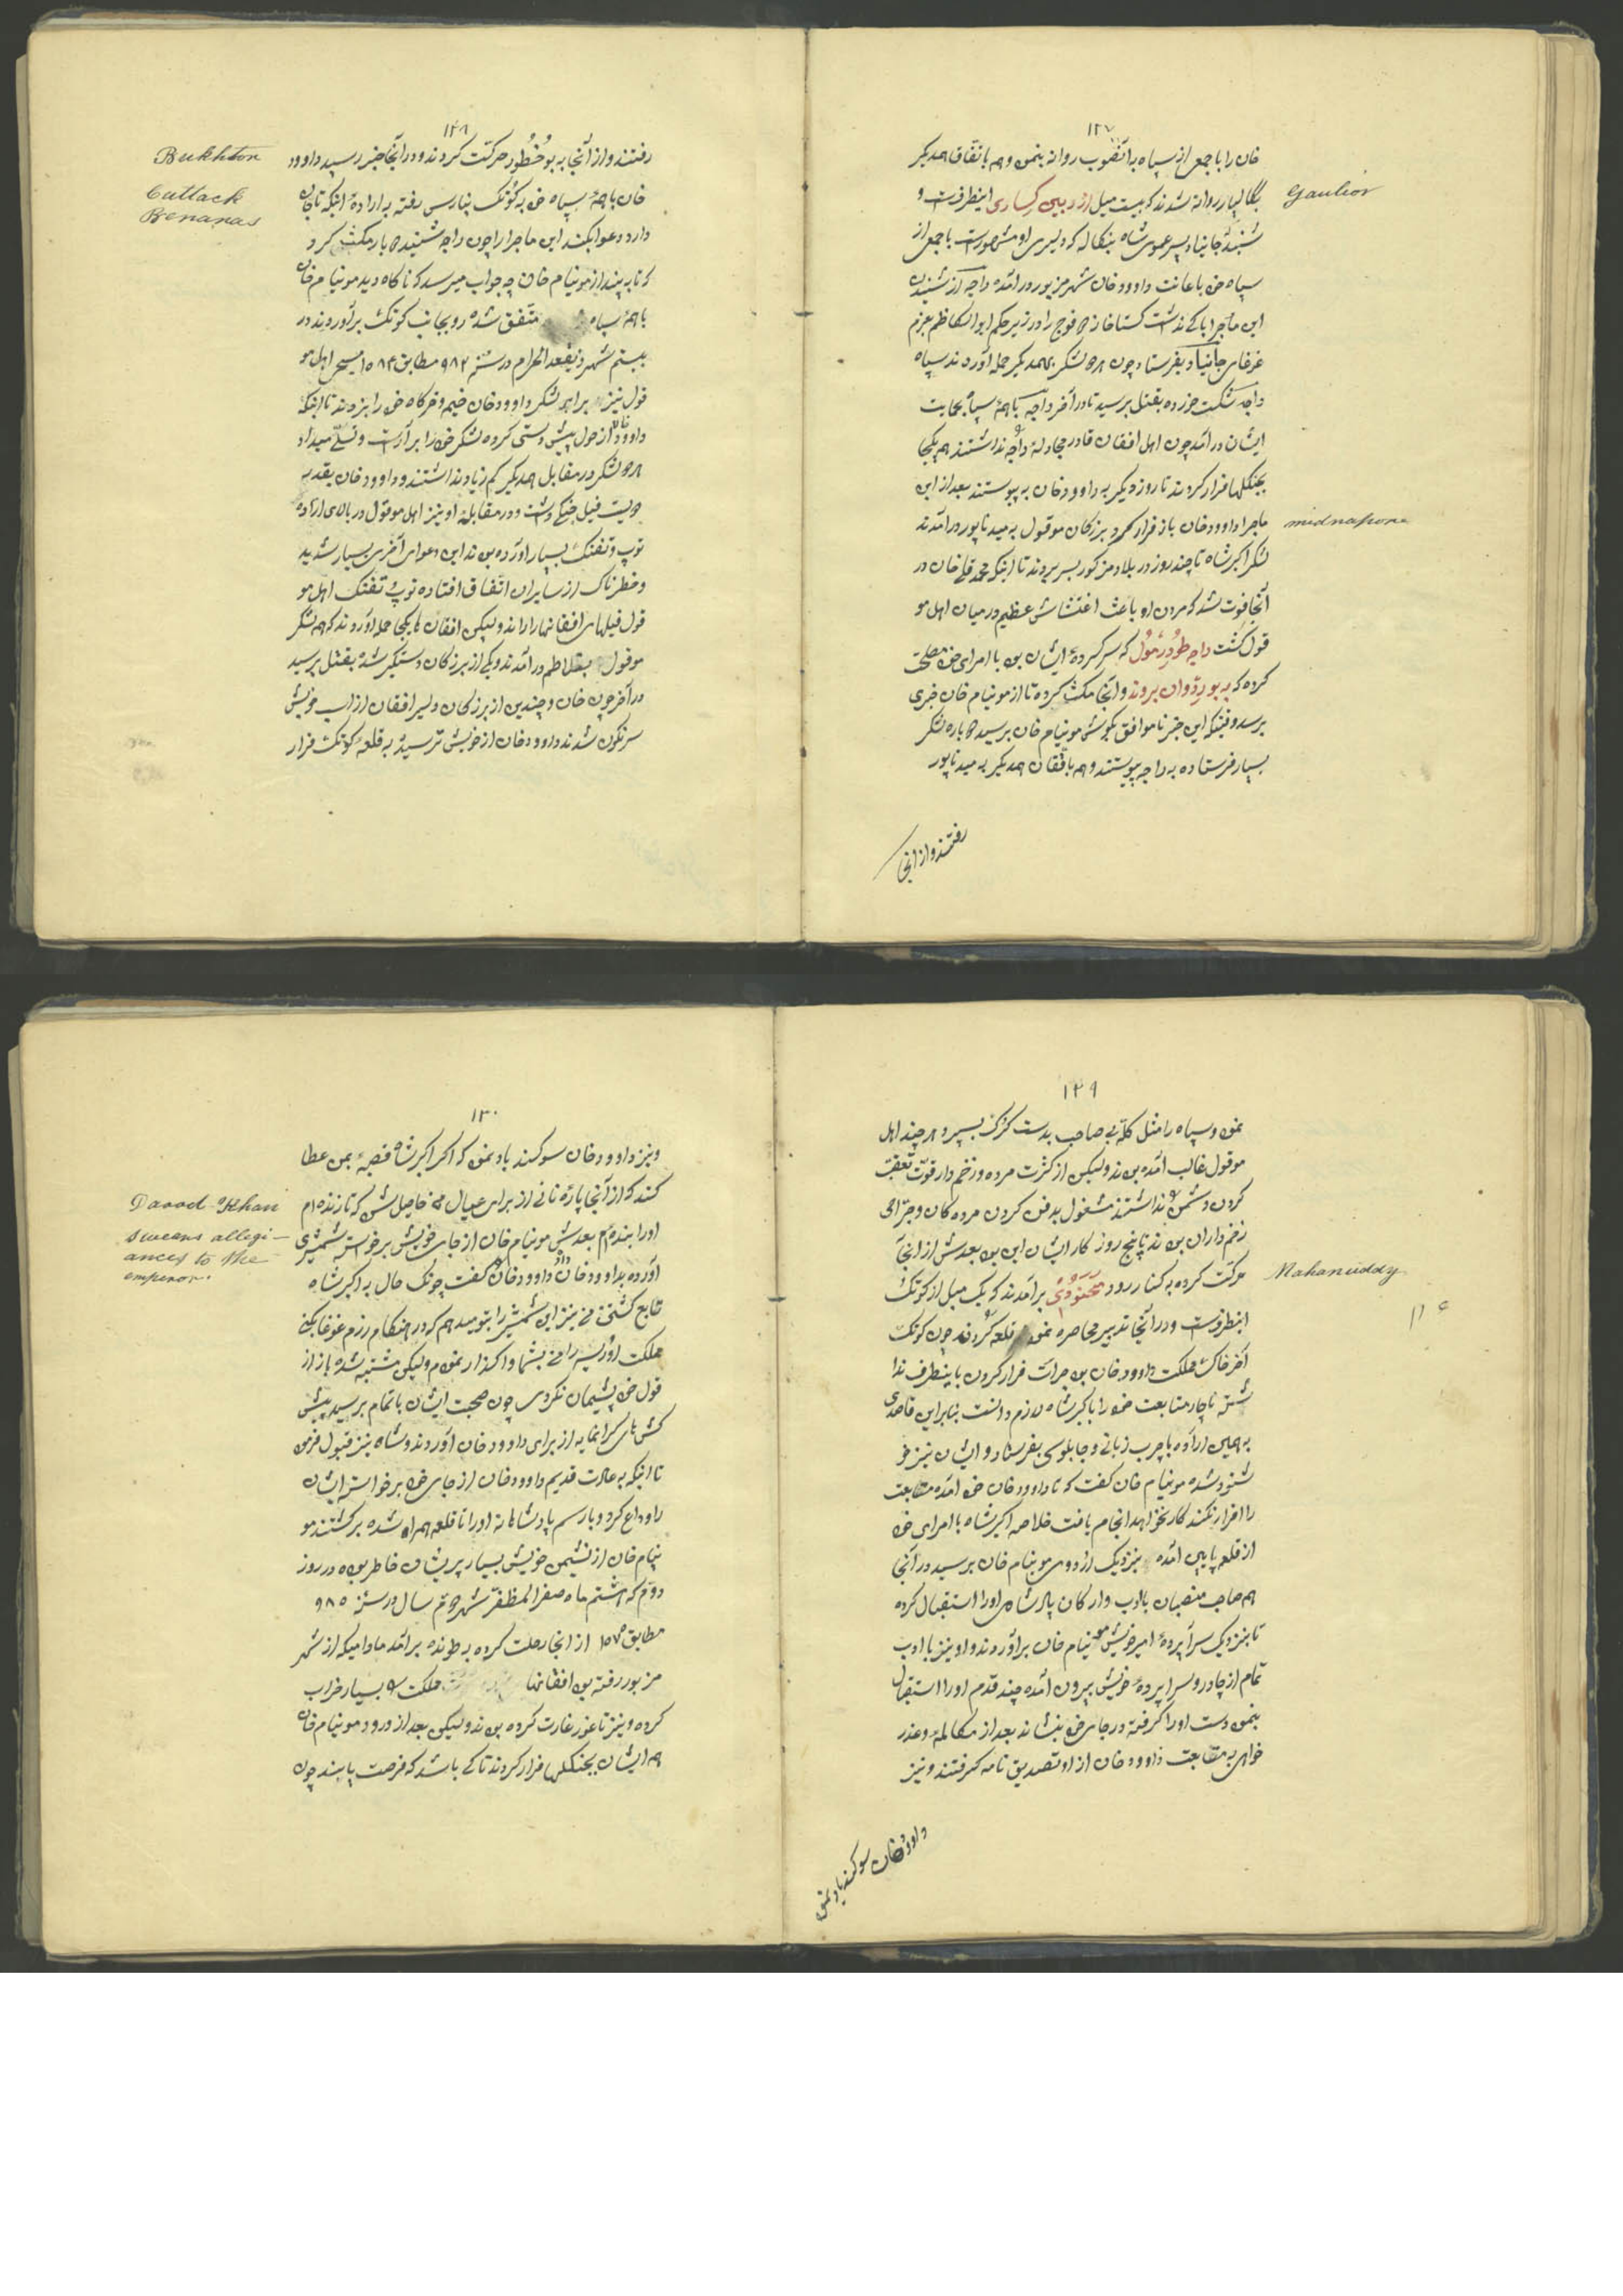 ۱۲۷
خان را با جمع از سپاه بدانصوب روانه بنمود و هم باتفاق همدیگر
بگالیار روانه شدند که بیست میل از دبین کساری اینطرفست و
Gaulior
شنیده جانیاد پسر عموی شاه بنکاله که دلیری او مشهورست با جمع از
سپاه خود باعانت داوود خان شهر مزبور در آمده راجه از شنیدن
این ماجرا باکی نداشت کستاخانه دو فوج را در زیر حکم ابوالکاظم بعزم
غزغای جانیاد بفرستاد چون هر دو لشکر بهمدیگر حمله آوردند سپاه
راجه شکست خورده بقتل برسید تا در آخر راجه با همهٔ سپاه بحمایت
ایشان در آمد چون اهل افغان قادر مجادلهٔ راجه نداشتند هم یکجا
بجنگلها فرار کردند تا روز دیگر به داوود خان به پیوستند بعد از این
ماجرا داوود خان باز فرار کرد بزرکان موقول به میدناپور در آمدند
midnapore
لشکر اکبر شاه تا چند روز در بلاد مزکور بسر بردند تا اینکه محمد قلی خان در
آنجا فوت شد که مردن او باعث اغتشاش عظیم در میان اهل مو
قول کشت راجه طودرمول که سرکردهٔ ایشان بود با امرای خود مصلحت
کرده که به بوردوان بروند و آنجا مکث کرده تا از مونیام خان خبری
برسد وقتیکه این خبر ناموافق بکوش مونیام خان برسید دوباره لشکر
بسیار فرستاده به راجه بپیوستند و هم باتفاق همدیگر به میدناپور
رفتند و از انجا
۱۲۸
رفتند و از آنجا به بوخطور حرکت کردند و در آنجا خبر رسید داوود
Bukhton
خان با همهٔ سپاه خود به کوتک بنارس رفته به ارادهٔ اینکه تا جان
Cuttack
Benaras
دارد دعوا بکند این ماجرا را چون راجه شنید دوباره مکث کرد
که تا به بیند از مونیام خان چه جواب میرسد که ناکاه دید مونیام خان
با همهٔ سپاه متفق شده رو بجانب کوتک برآوردند در
بیستم شهر ذیقعد الحرام در سنه ۹۸۲ مطابق ۱۵۸۴ مسیحی اهل مو
قول نیز برابر لشکر داوود خان خیمه و خرکاه خود را بزدند تا اینکه
داوود خان از حول پیش دستی کرده لشکر خود را بر آراست و تسلی میداد
هر دو لشکر در مقابل همدیگر کم زیاد نداشتند و داوود خان بقدر
دویست فیل جنکی داشت و در مقابله او نیز اهل موقول در بالای اراده
توپ و تفنک بسیار اورده بودند این دعوای آخری بسیار شدید
و خطرناک از سایران اتفاق افتاده توپ تفنک اهل مو
قول فیلهای افغانها را راند ولیکن افغان یکجا حمله آوردند که هم لشکر
موقول بتلاطم در آمدند و یکی از بزرکان دستگیر شده بقتل برسید
در آخر چون خان و چندین از بزرکان دلیر افغان از اسب خویش
سرنکون شدند داوود خان از خویش ترسیده به قلعهٔ کوتک فرار
۱۲۹
نمود و سپاه را مثل کله بی صاحب بدست کرک بسپرد هر چند اهل
موقول غالب آمده بودند ولیکن از کثرت مرده و زخم دار قوت تعقب
کردن دشمن نداشتند مشغول بدفن کردن مرده کان و جراحی
زخم داران بودند تا پنج روز کار ایشان این بود بعدش از انجا
حرکت کرده به کنار رود مَحنَوُدی برآمدند که یک میل از کوتک
Mahanuddy
اینطرفست و در آنجا تدبیر محاصره نمودن قلعه کردند چون کوتک
آخر خاک مملکت داوود خان بود جرات فرار کردن باینطرف ندا
شت ناچار متابعت خود را باکبر شاه لازم دانست بنابراین قاصدی
به همین اراده با چرب زبانی و چابلوسی بفرستاد و ایشان نیز خو
شنود شده مونیام خان کفت که تا داوود خان خود آمده متابعت
را اقرار نکند کار نخواهد انجام یافت خلاصه اکبر شاه با امرای خود
از قلعه پایین آمده بنزدیک اردوی مونیام خان برسید در آنجا
هم صاحب منصبان باادب و ارکان پادشاهی او را استقبال کرده
تا بنزدیک سراپردهٔ امیر خویش مونیام خان برآوردند و او نیز با ادب
تمام از چادر و سراپردهٔ خویش بیرون آمده چند قدم او را استقبال
بنمود دست او را کرفته در جای خود بنشاند بعد از مکالمه و عذر
خواهی به متابعت داوود خان از او تصدیق نامه کرفتند و نیز
داوود خان سوکند یاد نمود
۱۳۰
و نیز داوود خان سوکند یاد نمود که اکر اکبر شاه قصبهٔ بمن عطا
کند که از آنجا پارهٔ نانی از برای عیال من حاصل شود که تا زنده ام
Daood Khan
او را بنده ام بعدش مونیام خان از جای خویش برخواسته شمشیری
swears allegi-
ances to the
emperor.
آورده بداوود خان داد و کفت چونک حال به اکبر شاه
تابع کشتی من نیز این شمشیر را بتو میدهم که در هنکام رزم غوغا بکنی
مملکت اوریسه را من بشما واکذار نمودم ولیکن مشتبه شده باز از
قول خود پشیمان نکردی چون صحبت ایشان باتمام برسید پیش
کشی های کرانمایه از برای داوود خان آوردند و شاه نیز قبول فرمود
تا اینکه به عادت قدیم داوود خان از جای خود برخواسته ایشان
را وداع کرد و با رسم پادشاهانه او را تا قلعه همراه شده برکشتند مو
نیام خان از نشیمن خویش بسیار پریشان خاطر بود در روز
دوم که هشتم ماه صفر المظفر شهر دوم سال در سنه ۹۸۵
مطابق ۱۵۷۵ از انجا رحلت کرده به طونده برآمد مادامیکه از شهر
مزبور رفته بود افغانها مملکت را بسیار خراب
کرده و نیز تا غور غارت کرده بودند ولیکن بعد از ورود مونیام خان
هم ایشان بجنکلها فرار کردند تا کی باشد که فرصت یابند چون